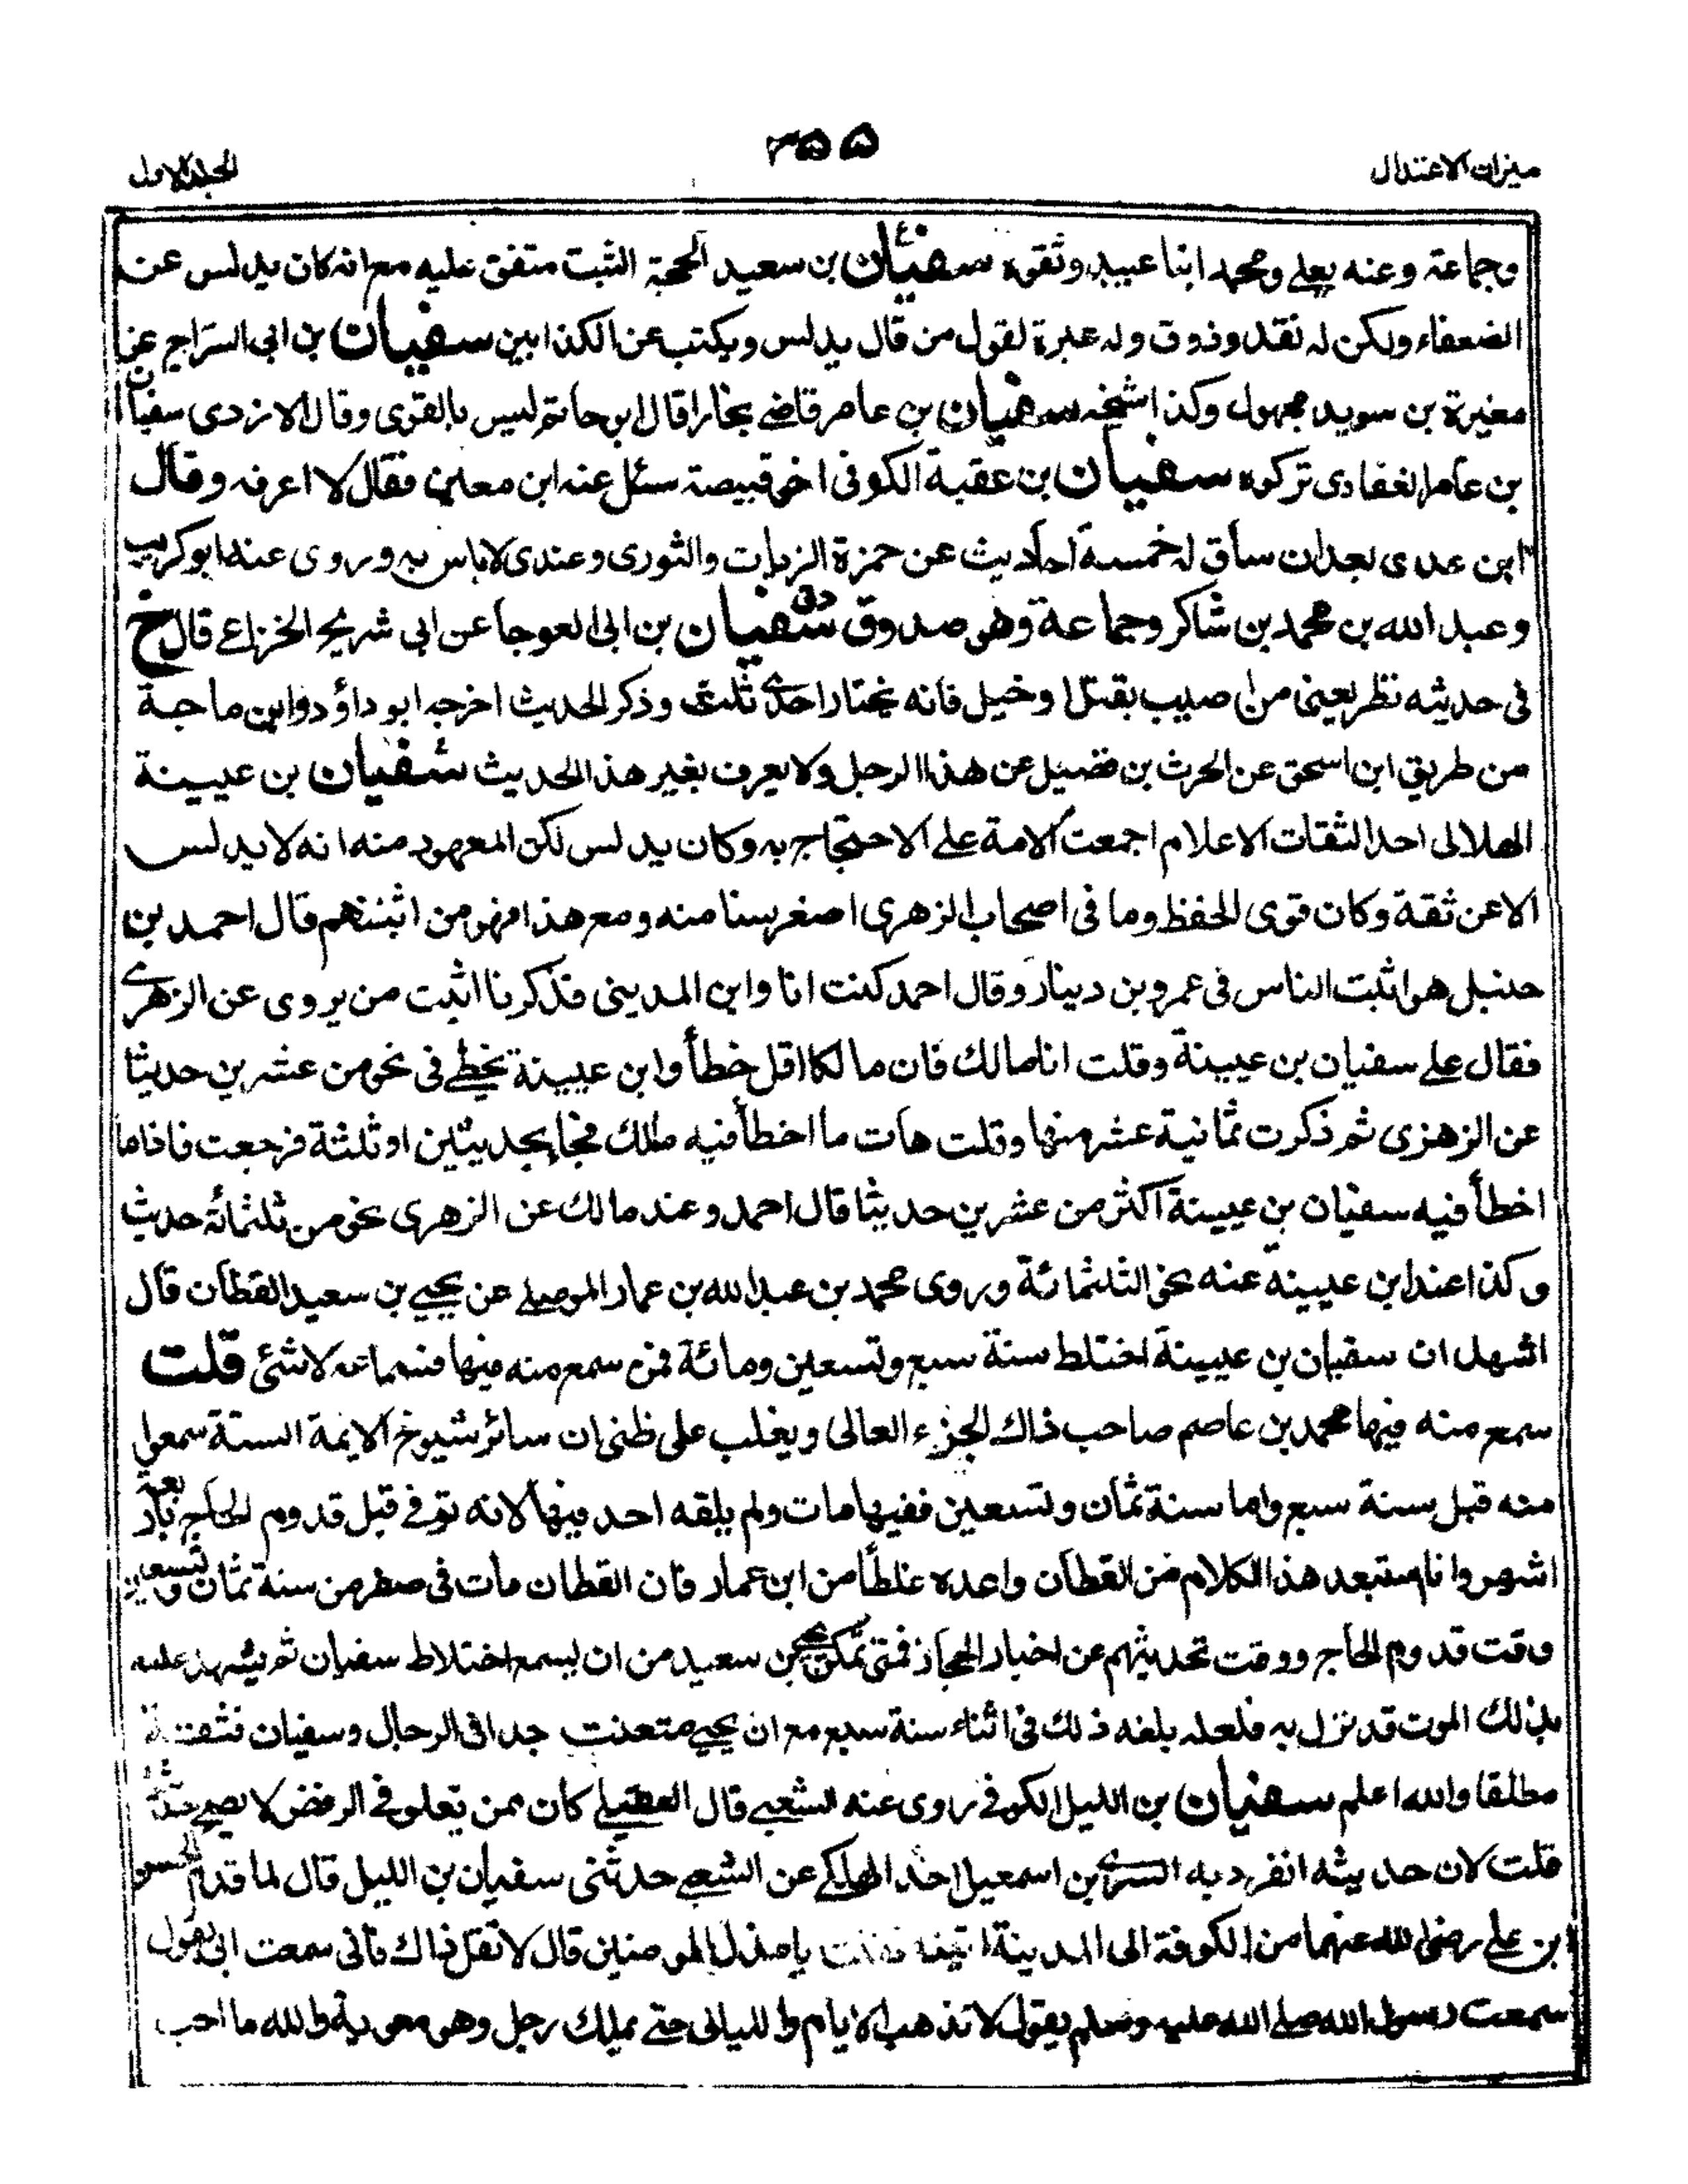 ميزان الاعتدال
٣٥٥
الجلد الاول
وجماعة وعنه يعلى ومحمد ابنا عبيد وثقوه سفيان بن سعيد الحجة الثبت متفق عليه مع انه كان يدلس عن
الضعفاء ولكن له نقد وذوق وله عبرة لقول من قال يدلس ويكتب عن الكذابين سفيان بن ابي السراج عن
مغيرة بن سويد مجهول وكذا شيخه سفيان بن عامر قاضي بخارا قال ابن حاتم ليس بالقوى وقال الازدى سفيان
بن عامر الغفادى تركوه سفيان بن عقبة الكوفى اخو قبيصة سئل عنه ابن معين فقال لا اعرفه وقال
ابن عدى بعد ان ساق له خمسة احاديث عن حمزة الزيات والثورى وعندى لا باس به وروى عنه ابو كريب
وعبد الله بن محمد بن شاكر وجماعة وهو صدوق دق سفيان بن ابى العوجا عن ابى شريح الخزاعى قال خ
فى حديثه نظر يعنى من اصيب بقتل او خبل فانه يختار احدى ثلث وذكر الحديث اخرجه ابو داؤد وابن ماجة
من طريق ابن اسحق عن الحرث بن فضيل عن هذا الرجل ولا يعرف بغير هذا الحديث سفيان بن عيينة
الهلالى احد الثقات الاعلام اجمعت الامة على الاحتجاج به وكان يدلس لكن المعهود منه انه لا يدلس
الا عن ثقة وكان قوى الحفظ وما فى اصحاب الزهرى اصغر سنا منه ومع هذا فهو من اثبتهم قال احمد بن
حنبل هو اثبت الناس فى عمرو بن دينار وقال احمد كنت انا وابن المدينى فذكرنا اثبت من يروى عن الزهرى
فقال على سفيان بن عيينة وقلت انا مالك فان مالكا اقل خطأ وابن عيينة يخطى فى نحو من عشرين حديثا
عن الزهرى ثم ذكرت ثمانية عشر منها وقلت هات ما اخطأ فيه مالك فجا بحديثين او ثلثة فرجعت فاذا ما
اخطأ فيه سفيان بن عيينة اكثر من عشرين حديثا قال احمد وعند مالك عن الزهرى نحو من ثلثمائة حديث
وكذا عند ابن عيينة عنه نحو الثلثمائة وروى محمد بن عبد الله بن عمار الموصلى عن يحيى بن سعيد القطان قال
اشهد ان سفيان بن عيينة اختلط سنة سبع وتسعين ومائة فمن سمع منه فيها فسماعه لا شئ قلت
سمع منه فيها محمد بن عاصم صاحب ذاك الجزء العالى ويغلب على ظنى ان سائر شيوخ الايمة الستة سمعوا
منه قبل سنة سبع واما سنة ثمان وتسعين ففيها مات ولم يلقه احد فيها لانه توفى قبل قدوم الحاج باربعة
اشهر وانا مستبعد هذا الكلام من القطان واعده غلطا من ابن عمار فان القطان مات فى صفر من سنة ثمان وتسعين
وقت قدوم الحاج ووقت تحديثهم عن اخبار الحجاز فمتى تمكن يحيى بن سعيد من ان يسمع اختلاط سفيان ثم يشهد عليه
بذلك الموت قد نزل به فلعله بلغه ذلك فى اثناء سنة سبع مع ان يحيى متعنت جدا فى الرجال وسفيان فثقة
مطلقا والله اعلم سفيان بن الليل الكوفى روى عنه الشعبى قال العقيلى كان ممن يغلو فى الرفض لا يصح حديثه
قلت لان حديثه انفرد به السرى بن اسمعيل احد الهلكى عن الشعبى حدثنى سفيان بن الليل قال لما قدم الحسن
بن على رضى الله عنهما من الكوفة الى المدينة اتيته فقلت يا مذل المومنين قال لا تقل ذاك فانى سمعت ابى يقول
سمعت رسول الله صلى الله عليه وسلم يقول لا تذهب الايام والليالى حتى يملك رجل وهو معوية والله ما احب